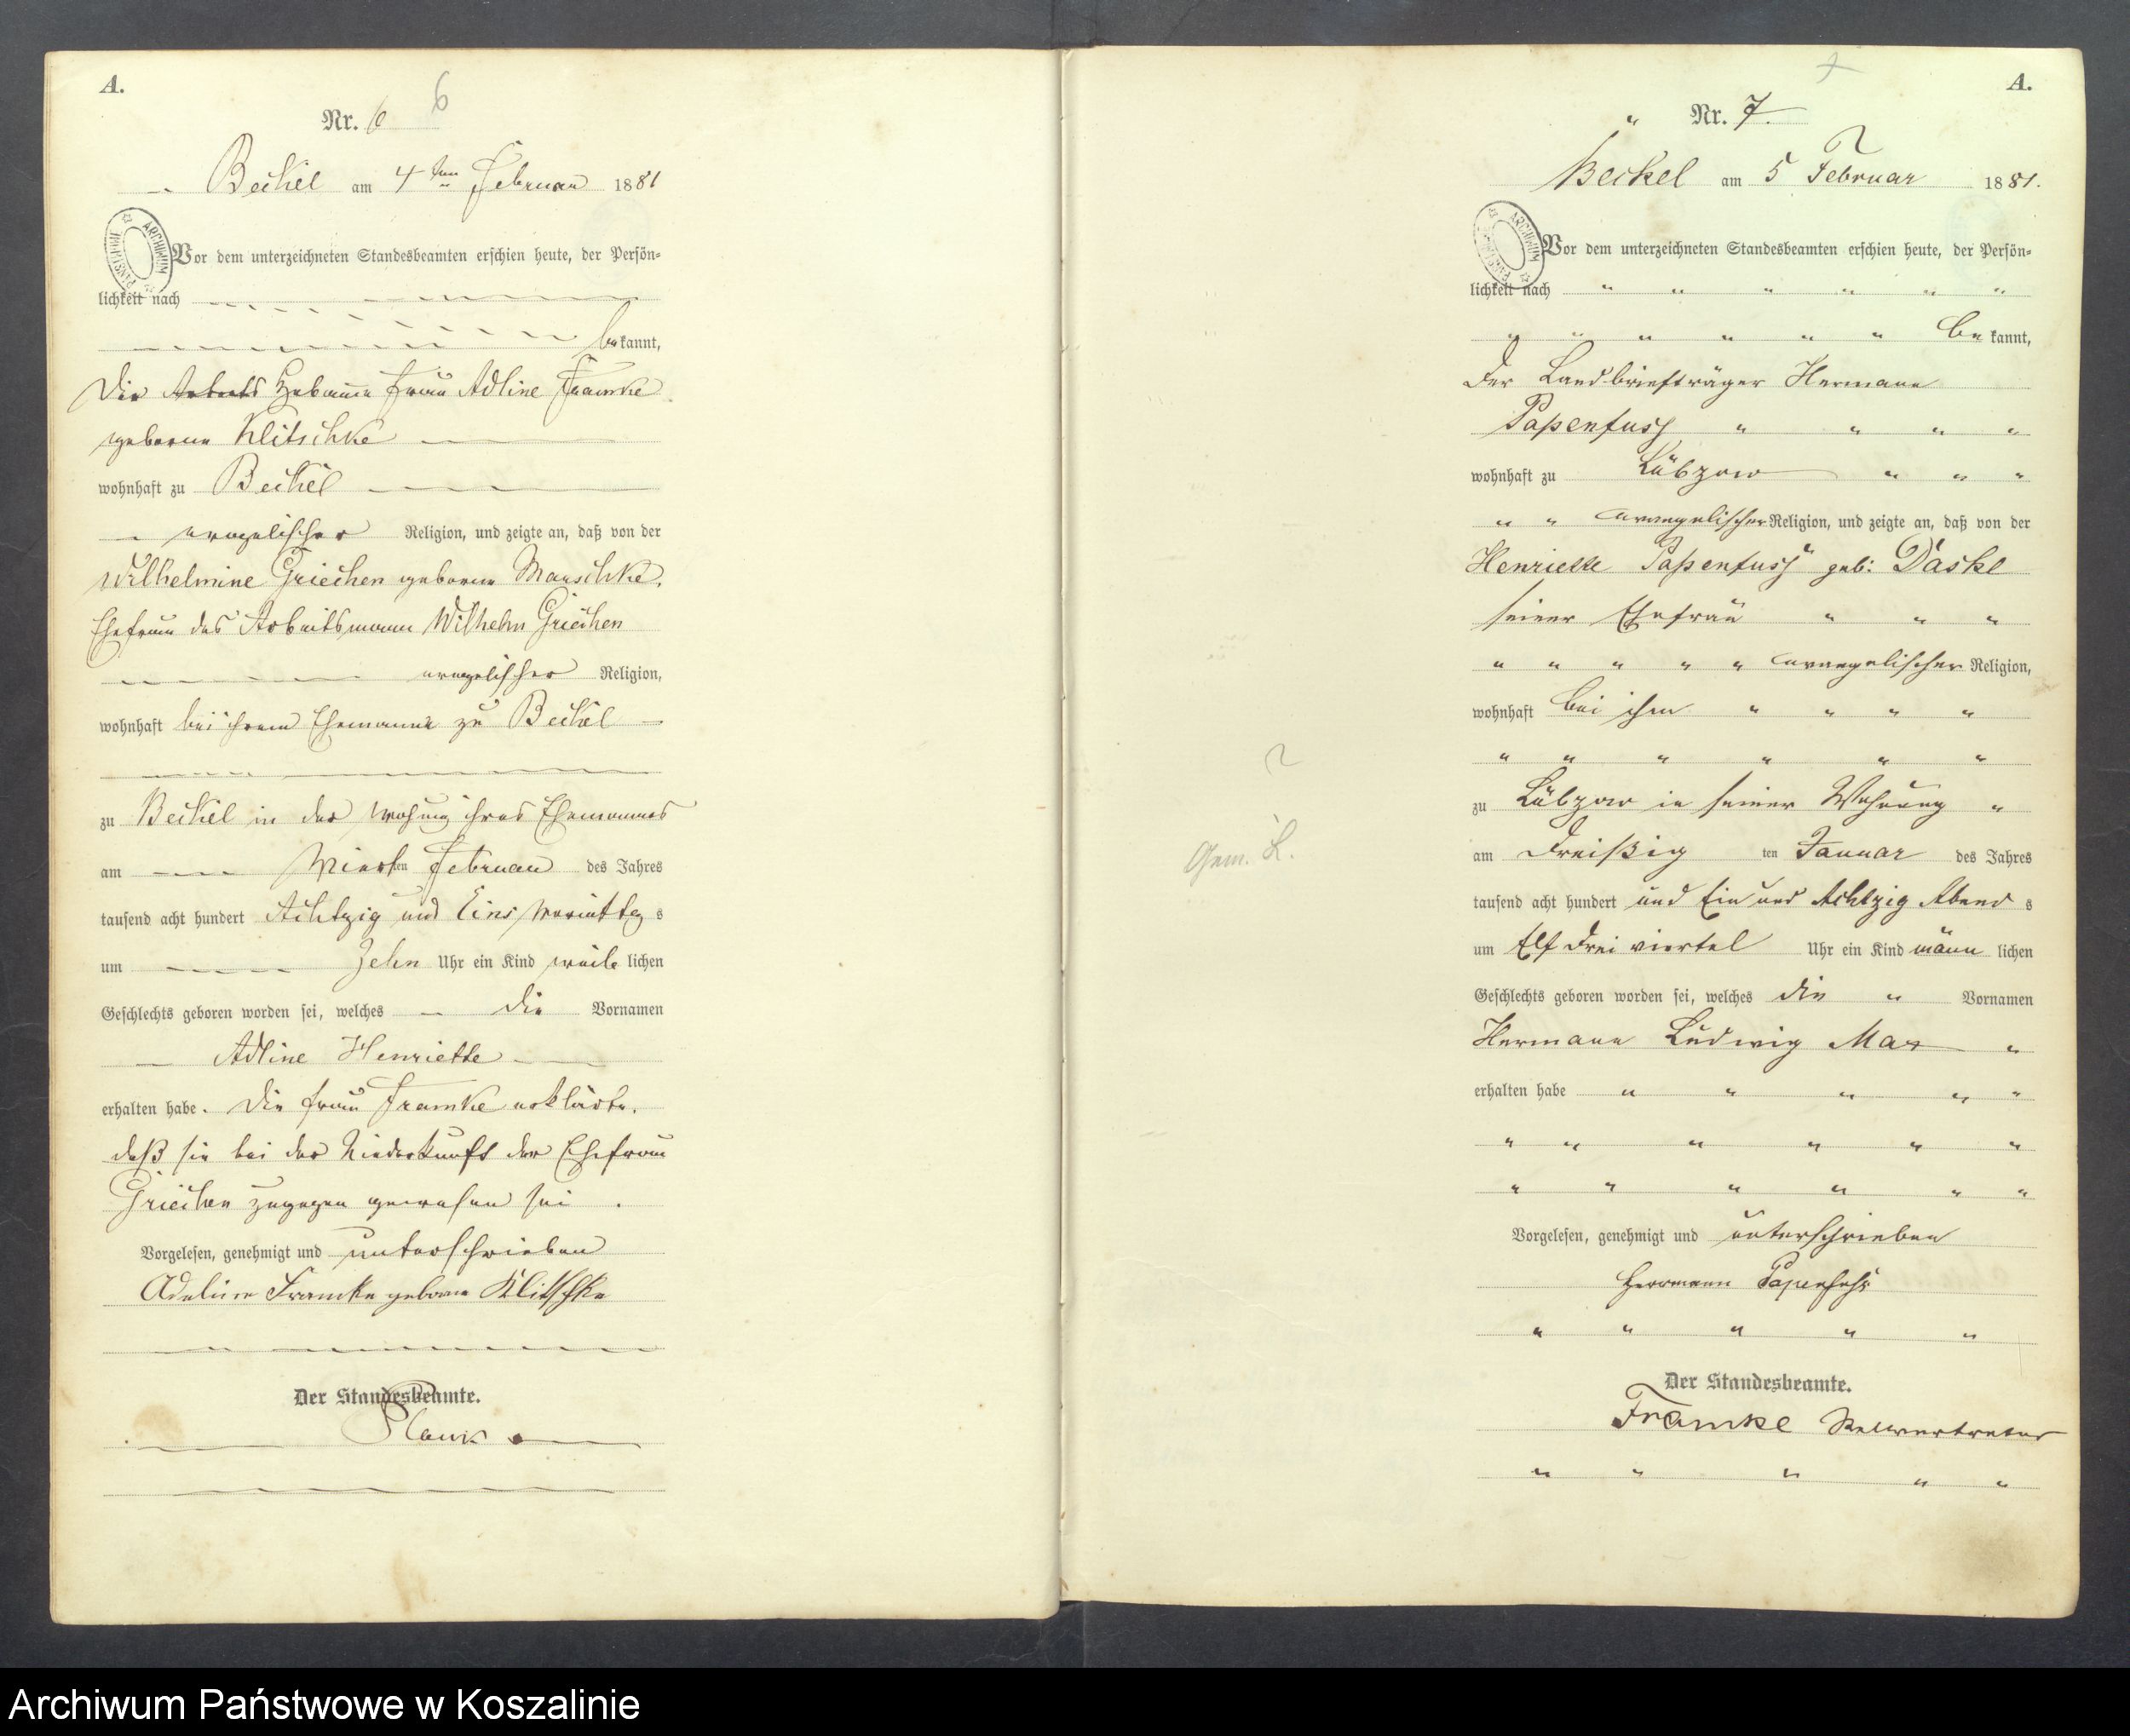 A.
Nr. 6
6
Beckel am 4ten Februar 1881
Vor dem unterzeichneten Standesbeamten erschien heute, der Persön-
lichkeit nach
bekannt,
Die Arbeits Hebamme Frau Adline Framke
geborne Klitschke
wohnhaft zu Beckel
evangelischer Religion, und zeigte an, daß von der
Wilhelmine Griechen geborne Marschke,
Ehefrau des Arbeitsmann Wilhelm Griechen
evangelischer Religion,
wohnhaft bei ihrem Ehemanne zu Beckel
zu Beckel in der Wohnung ihres Ehemannes
am Vierten Februar des Jahres
tausend acht hundert Achtzig und Eins Vormittags
um Zehn Uhr ein Kind weiblichen
Geschlechts geboren worden sei, welches die Vornamen
Adline Henriette
erhalten habe. Die Frau Framke erklärte,
daß sie bei der Niederkunft der Ehefrau
Griechen zugegen gewesen sei.
Vorgelesen, genehmigt und unterschrieben
Adeline Framke geborne Klitschke
Der Standesbeamte.
A.
7
Nr. 7.
Beckel am 5 Februar 1881.
Vor dem unterzeichneten Standesbeamten erschien heute, der Persön-
lichkeit nach
bekannt,
Der Landbriefträger Hermann
Papenfuss
wohnhaft zu Lübzow
evangelischer Religion, und zeigte an, daß von der
Henriette Papenfuss geb: Daske
seiner Ehefrau
evangelischer Religion,
wohnhaft bei ihm
zu Lübzow in seiner Wohnung
am Dreißigten Januar des Jahres
tausend acht hundert und Ein und Achtzig Abends
um Elf drei viertel Uhr ein Kind männlichen
Geschlechts geboren worden sei, welches die Vornamen
Hermann Ludwig Max
erhalten habe
Vorgelesen, genehmigt und unterschrieben
Herrmann Papenfuhs
Der Standesbeamte.
Framke Stellvertreter
Archiwum Państwowe w Koszalinie